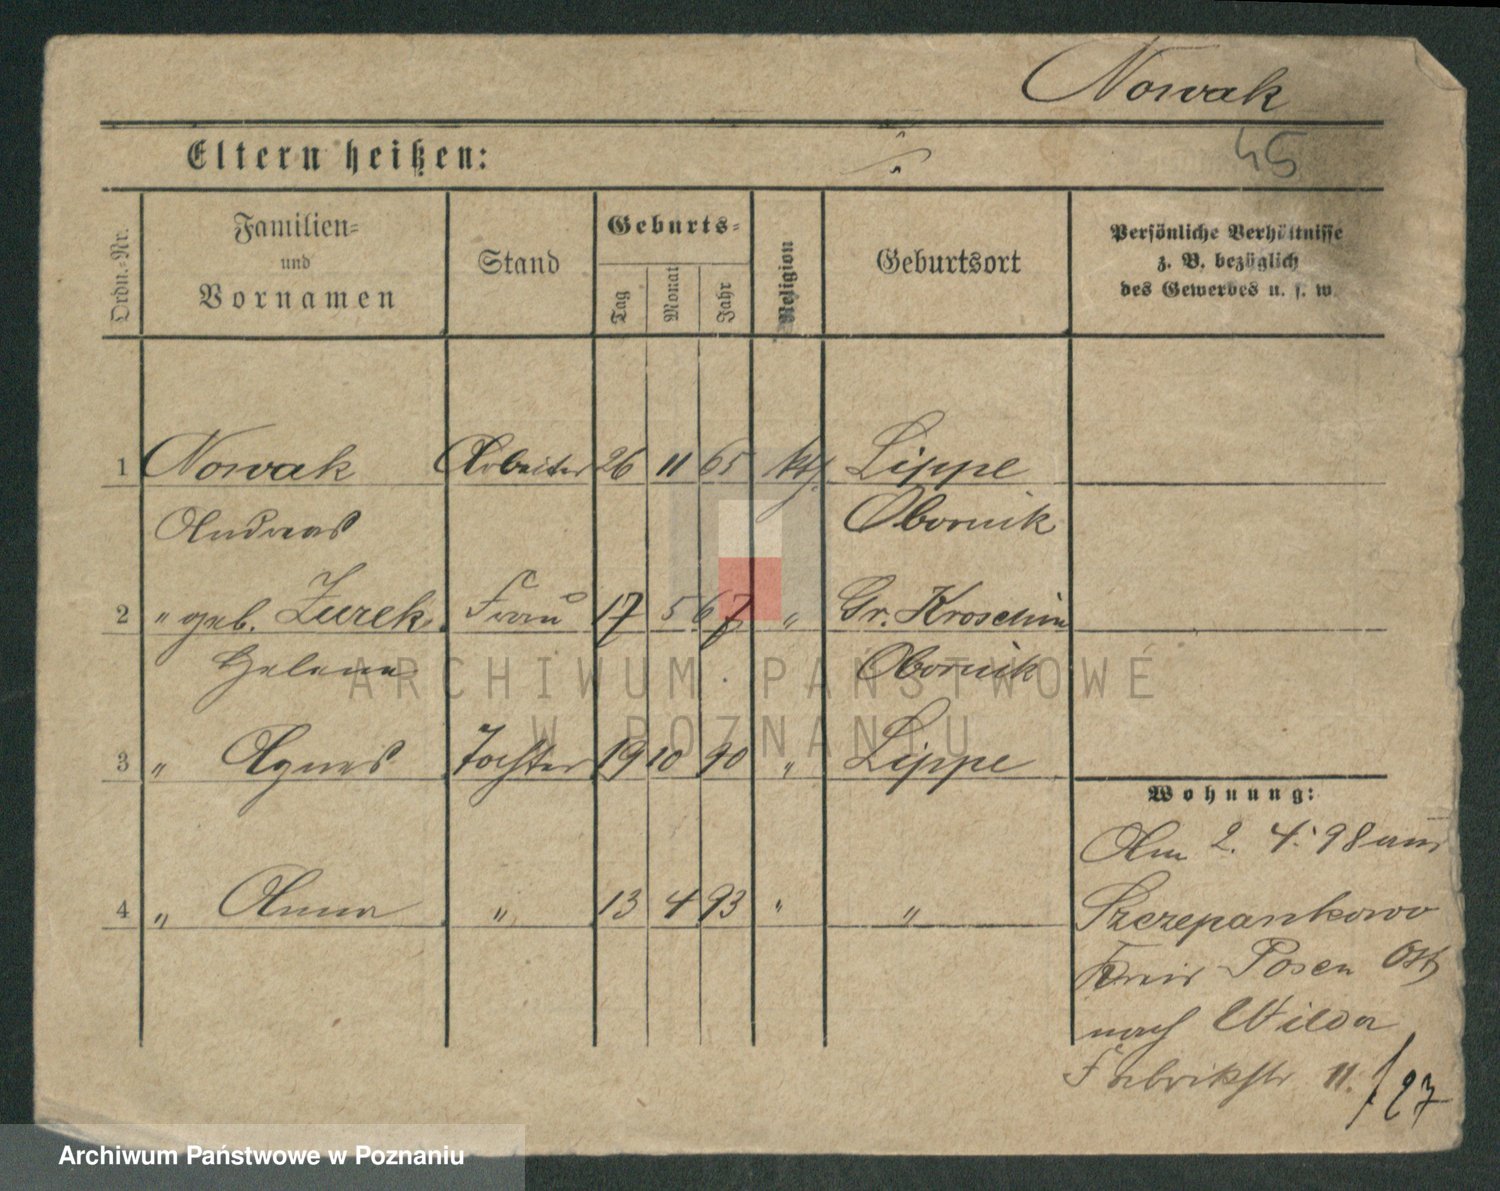 Nowak
45
Eltern heißen:
Ordn.-Nr.
Familien-
und
Vornamen
Stand
Geburts-
Tag
Monat
Jahr
Religion
Geburtsort
Persönliche Verhältnisse
z. B. bezüglich
des Gewerbes u. s. w.
1 Nowak Arbeiter 26 11 65 kth. Lippe
Andreas Obornik
2 " geb. Zurek Frau 17 5 67 " Gr. Kroschin
Helena Obornik
3 " Agnes Tochter 19 10 90 " Lippe
Wohnung:
Am 2. 4. 98 aus
4 " Anna " 13 4 93 " "
Szczepankowo
Kreis Posen Ost
nach Wilda
Fabrikstr 11. / 27
ARCHIWUM PAŃSTWOWE
W POZNANIU
Archiwum Państwowe w Poznaniu